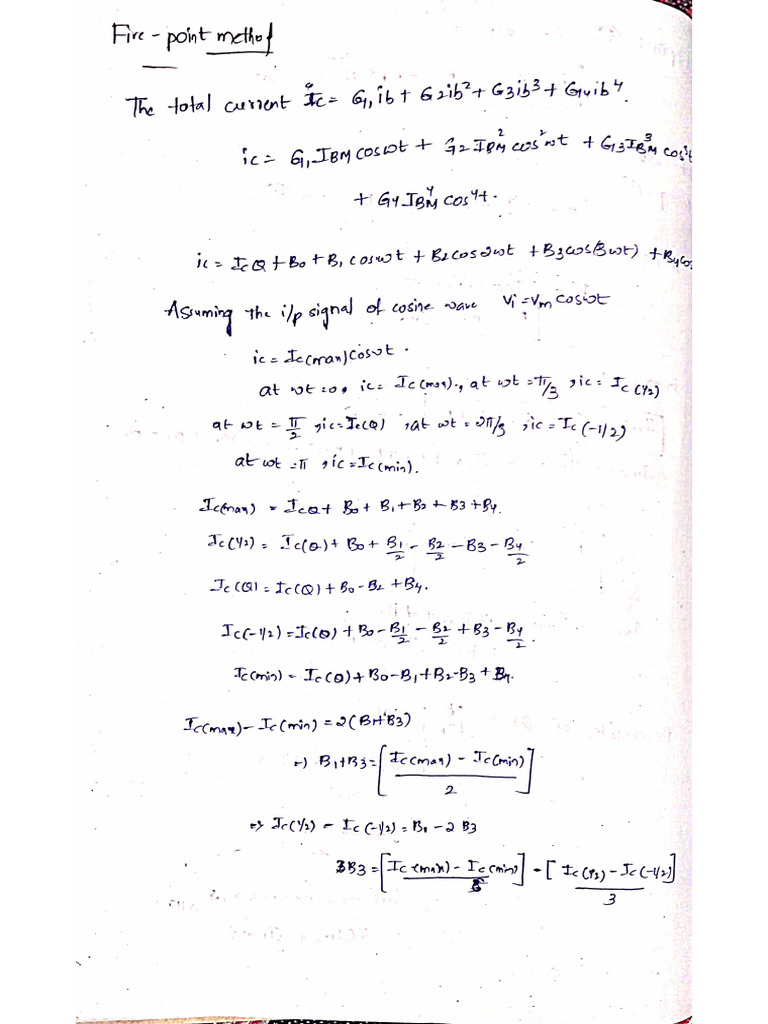 Five-point method
The total current Ic = G1ib + G2ib² + G3ib³ + G4ib⁴
ic = G1IBM cosωt + G2IBM² cos²ωt + G3IBM³ cos³t
+ G4IBM⁴ cos⁴t.
ic = IcQ + B0 + B1 cosωt + B2cos2ωt + B3cos(3ωt) + B4cos
Assuming the i/p signal of cosine wave Vi = Vm cosωt
ic = Ic(max)cosωt.
at ωt = 0, ic = Ic(max)., at ωt = π/3, ic = Ic(1/2)
at ωt = π/2, ic = Ic(Q), at ωt = 2π/3, ic = Ic(-1/2)
at ωt = π, ic = Ic(min).
Ic(max) = IcQ + B0 + B1 + B2 + B3 + B4.
Ic(1/2) = Ic(Q) + B0 + B1/2 - B2/2 - B3 - B4/2
Ic(Q) = Ic(Q) + B0 - B2 + B4.
Ic(-1/2) = Ic(Q) + B0 - B1/2 - B2/2 + B3 - B4/2.
Ic(min) = Ic(Q) + B0 - B1 + B2 - B3 + B4.
Ic(max) - Ic(min) = 2(B1+B3)
=) B1+B3 = [Ic(max) - Ic(min)/2]
=> Ic(1/2) - Ic(-1/2) = B1 - 2B3
3B3 = [Ic(max) - Ic(min)] - [Ic(1/2) - Ic(-1/2)]/3